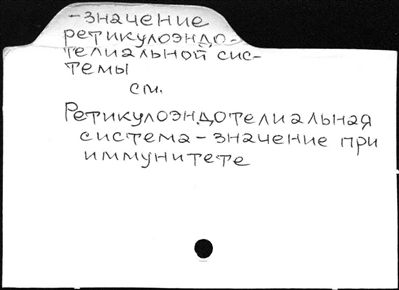 -значение
ретикулоэндо-
телиальной сис-
темы
см.
Ретикулоэндотелиальная
система - значение при
иммунитете